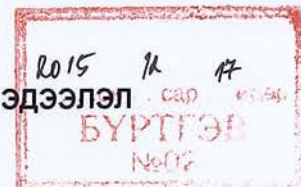 2015 12 17
ЭДЭЭЛЭЛ
сар
БҮРТГЭВ
№02